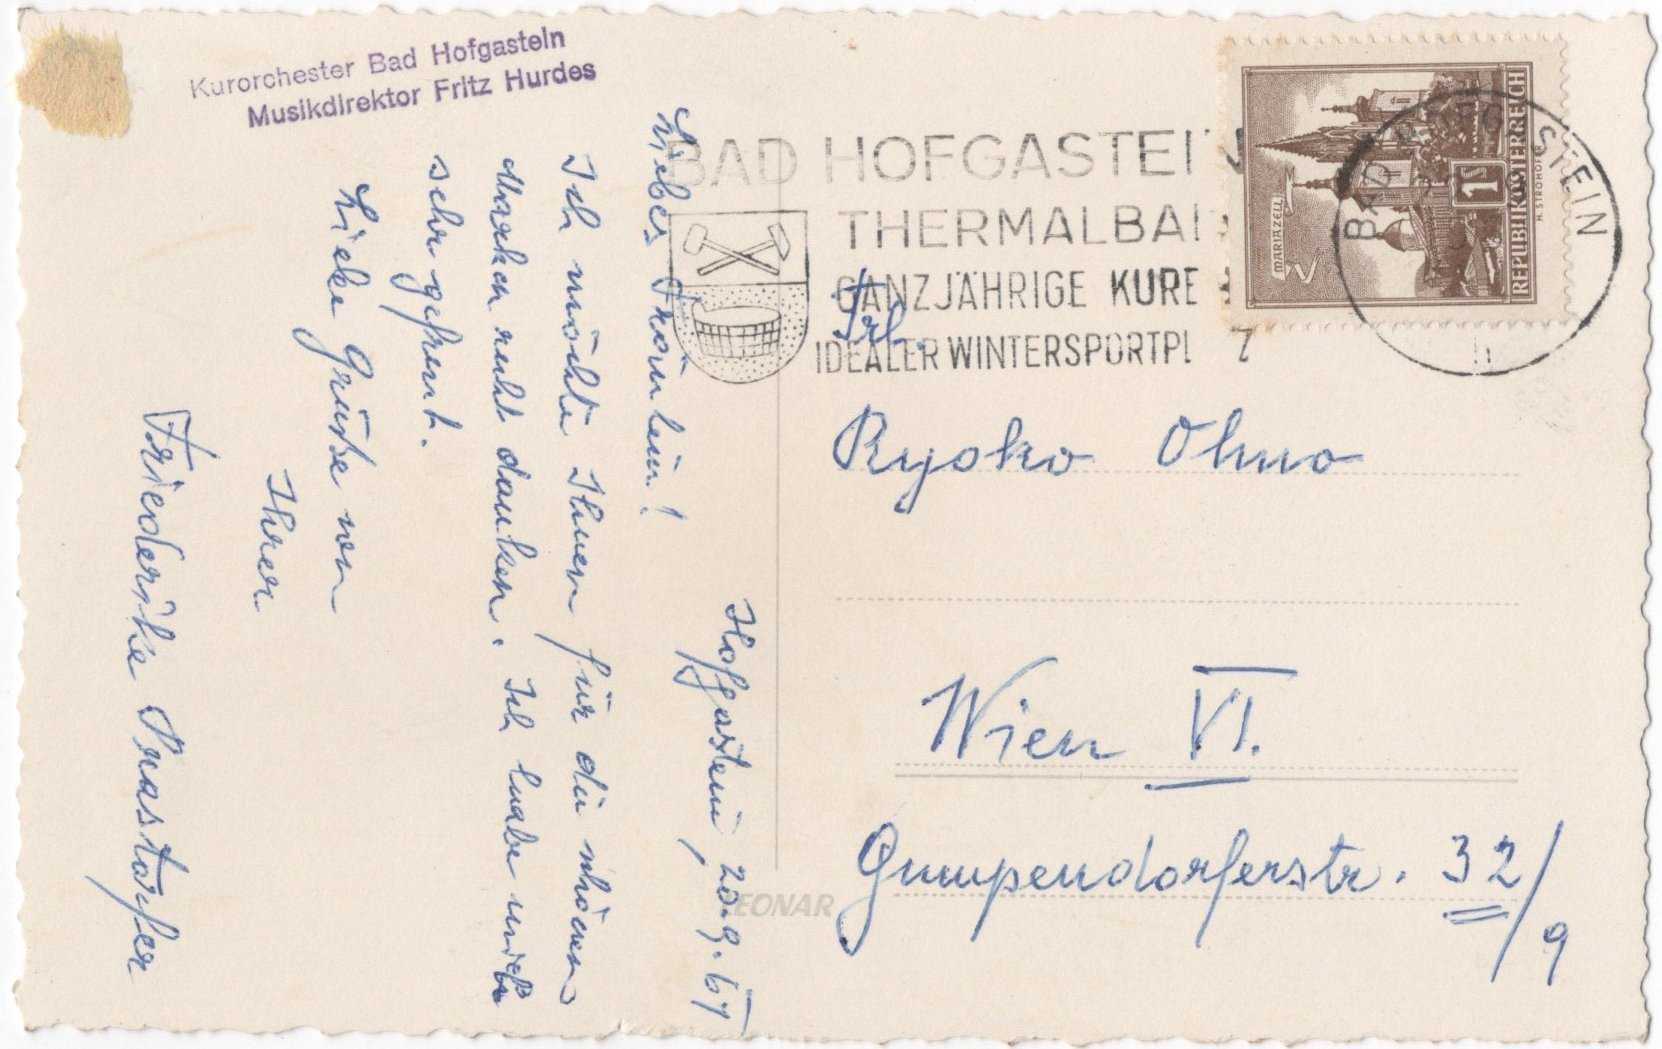 Kurorchester Bad Hofgastein
Musikdirektor Fritz Hurdes
Hofgastein, 20.9.61
Liebes Fräulein!
Ich möchte Ihnen für die schönen
Marken recht danken. Ich habe mich
sehr gefreut.
Liebe Grüße von
Ihrer
Friederike
BAD HOFGASTEIN
THERMALBAD
GANZJÄHRIGE KURE
IDEALER WINTERSPORTPL Z
MARIAZELL
1
REPUBLIK ÖSTERREICH
H. STROHOFER
BAD HOFGASTEIN
Frl.
Ryoko Ohno
Wien VI.
Gumpendorferstr. 32/9
LEONAR